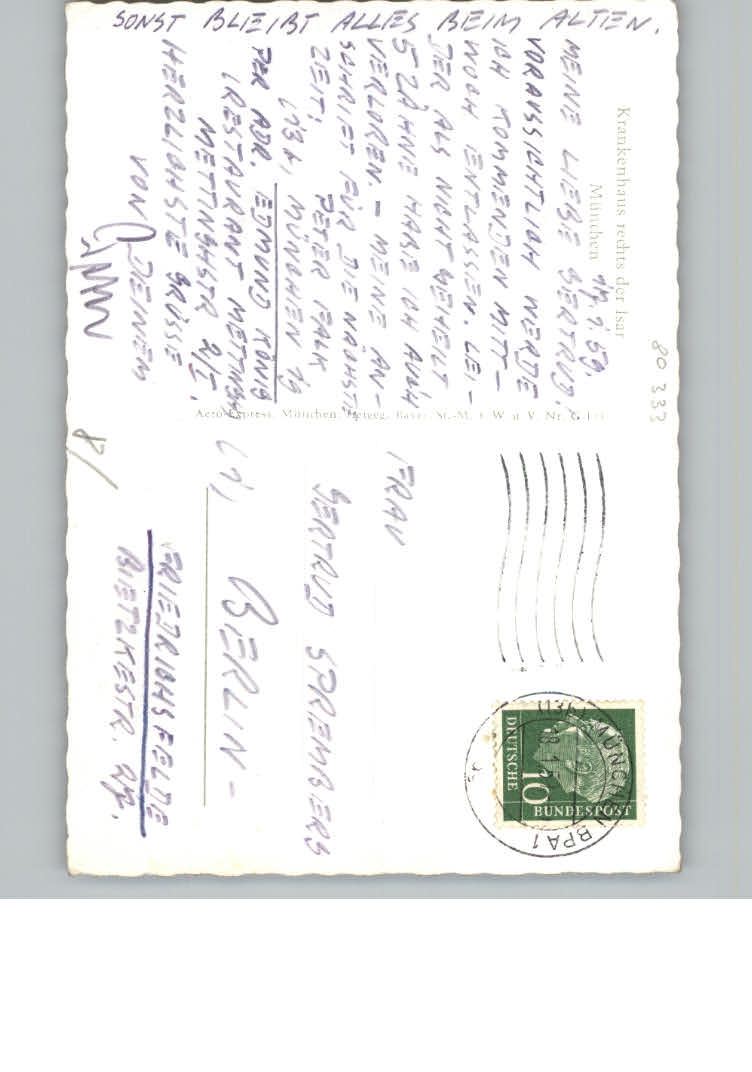 SONST BLEIBT ALLES BEIM ALTEN.
Krankenhaus rechts der Isar
München
59.
MEINE LIEBE GERTRUD,
VORAUSSICHTLICH WERDE
ICH KOMMENDEN MITT-
WOCH ENTLASSEN. LEI-
DER ALS NICHT GEHEILT
5 ZÄHNE HABE ICH AUCH
VERLOREN. - MEINE AN-
SCHRIFT FÜR DIE NÄCHSTE
ZEIT: PETER FALK
(13b) MÜNCHEN 19
PER ADR. EDMUND KÖNIG
(RESTAURANT METTINGH
METTINGHSTR. 2/I.
HERZLICHSTE GRÜSSE
VON DEINEM
80 333
Aero-Express, München, Freigeg. Bayer. St.-M. f. W. u. V. Nr. G
FRAU
GERTRUD SPREMBERG
(1) BERLIN-
FRIEDRICHSFELDE
BIETZKESTR.
8/
DEUTSCHE
10
BUNDESPOST
(13b) MÜNCHEN BPA 1